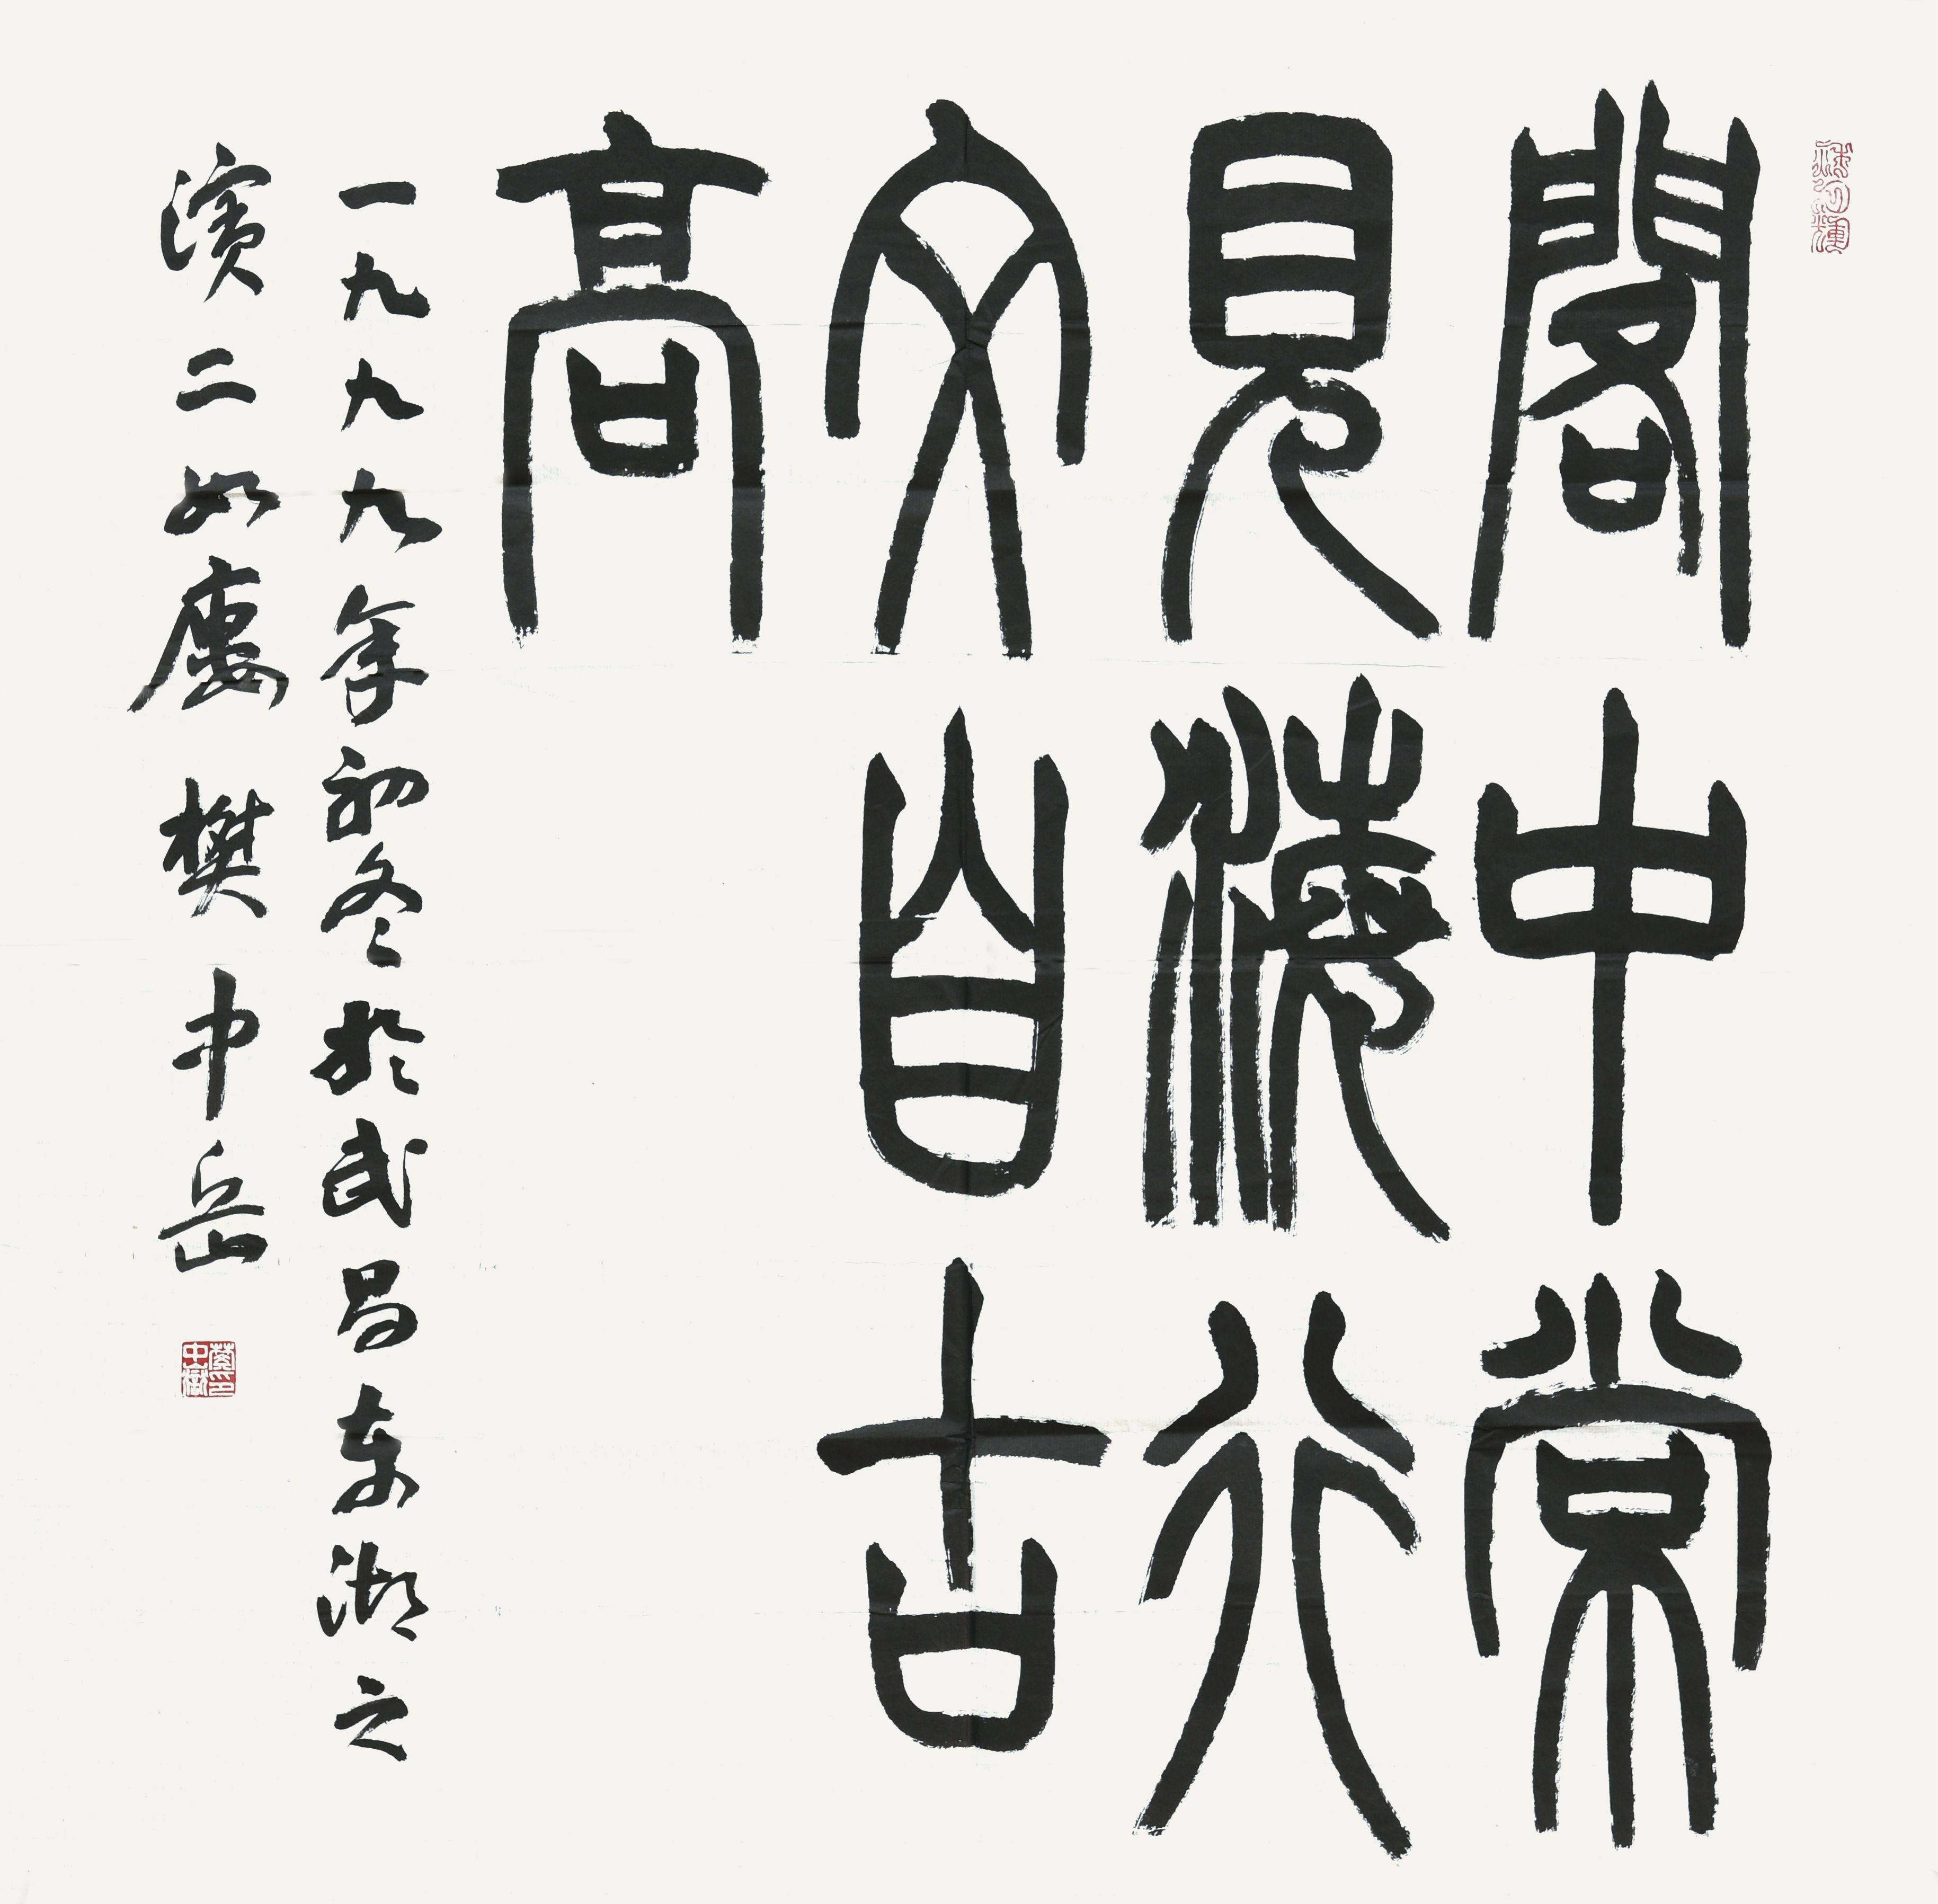 閣中常
見行
文自古
高
一九九九年初冬於武昌東湖之
濱二如廬樊中岳